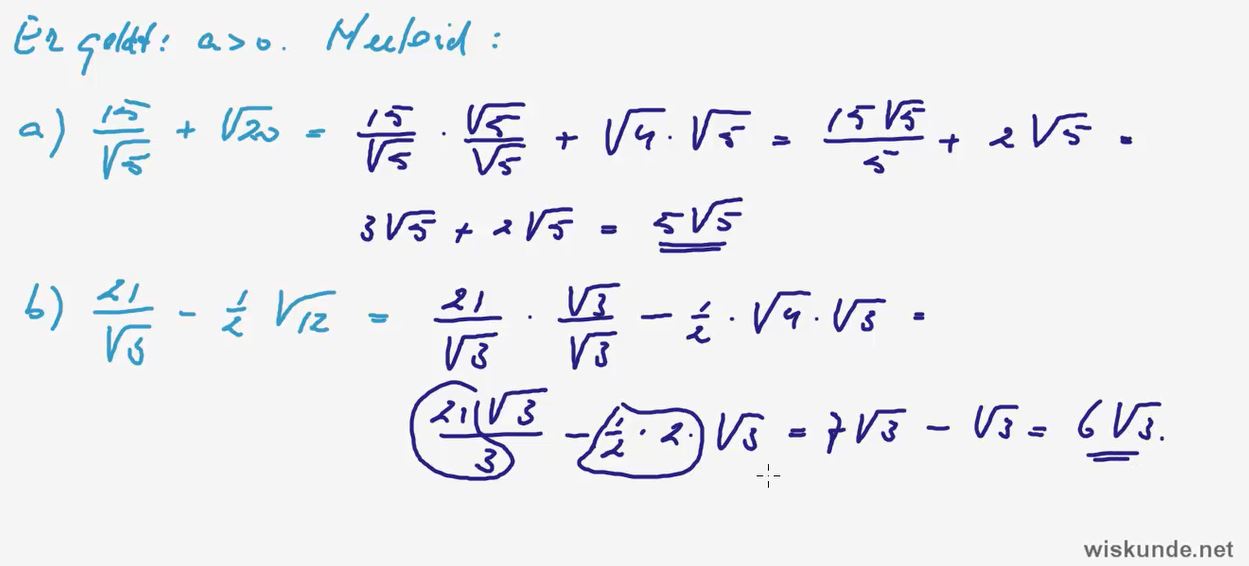 Er geldt: a>0. Herleid:
a) 15/√5 + √20 = 15/√5 · √5/√5 + √4 · √5 = 15√5/5 + 2√5 =
3√5 + 2√5 = 5√5
b) 21/√3 - 1/2 √12 = 21/√3 · √3/√3 - 1/2 · √4 · √3 =
21√3/3 - 1/2 · 2 · √3 = 7√3 - √3 = 6√3.
wiskunde.net